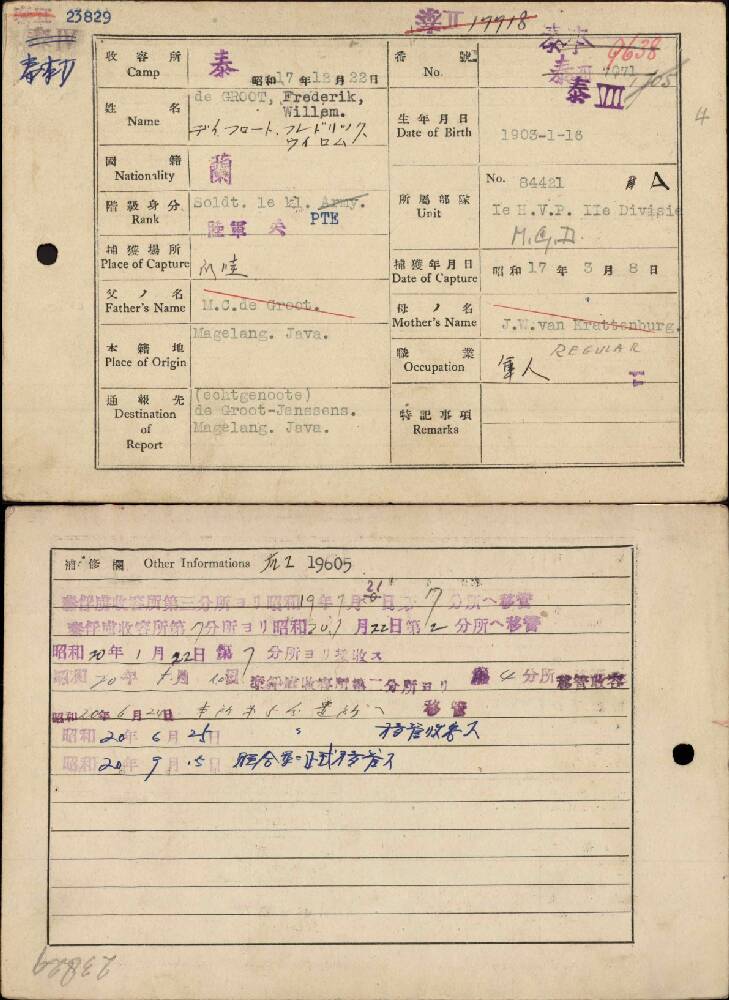 23829
泰本Ⅱ
17918
9638
7071
泰Ⅶ
4
收容所 Camp 泰 昭和17年12月22日
番號 No.
姓名 Name de GROOT, Frederik, Willem.
デイフロート、フレドリック、ウイロム
生年月日 Date of Birth 1903-1-16
國籍 Nationality 蘭
階級身分 Rank Soldt. 1e kl. Army.
陸軍 PTE
所屬部隊 Unit No. 84421 A
Ie H.V.P. IIe Divisie
M.G.D.
捕獲場所 Place of Capture
捕獲年月日 Date of Capture 昭和17年3月8日
父ノ名 Father's Name M.C.de Groot.
母ノ名 Mother's Name J.W.van Krattenburg.
本籍地 Place of Origin Magelang. Java.
職業 Occupation 軍人 REGULAR
通報先 Destination of Report (echtgenoote)
de Groot-Janssens.
Magelang. Java.
特記事項 Remarks
補修欄 Other Informations 19605
泰俘虜收容所第三分所ヨリ昭和19年7月21日第7分所ヘ移管
泰俘虜收容所第7分所ヨリ昭和20.1月22日第2分所ヘ移管
昭和20年1月22日第7分所ヨリ接收ス
昭和20年 月10日泰俘虜收容所第二分所ヨリ第4分所 移管收容
昭和20年6月 日 移管
昭和20年6月25日 〃 移管收容ス
昭和20年9月5日 聯合軍ニ正式移管ス
23829